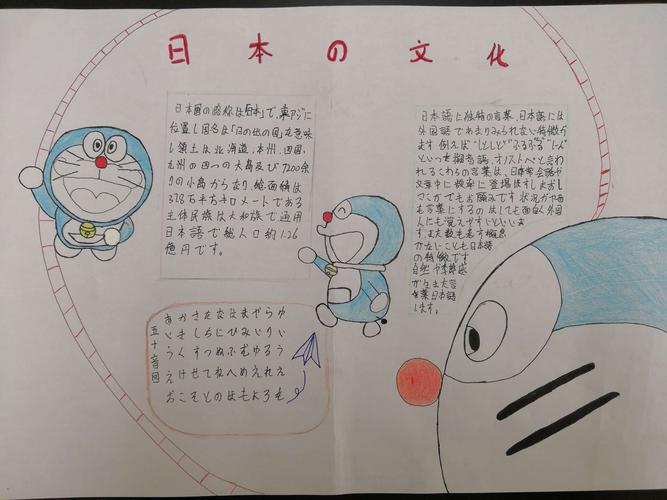 日本の文化
日本国の略称は「日本」で、東アジに
位置し国名は「日の出の国」を意味
し領土は北海道、本州、四国、
九州の四つの大島及び7200余
りの小島からなり、総面積は
378万平方キロメートである
主体民族は大和族で通用
日本語で総人口約1.26
億円です。
日本語は独特の言葉、日本語には
外国語であまりみられない特徴が
ます 例えば
といった擬者語、オノストペと言わ
れるこれらの言葉は、日常会話や
文章中に頻率に登場はすしおし
まごかでもお馴みです 状況が
も言葉にするの はしても面白く外国
人にも覚えやすいといいま
す、また数も表す概念
かないことも日本語
の特徴です
自然や季節感
言葉日本語
します。
五十音図
あかさたなはまやらゆ
いきしちにひみいりい
うくすつぬふむゆるう
えけせてねへめえれえ
おこそとのほもよろを